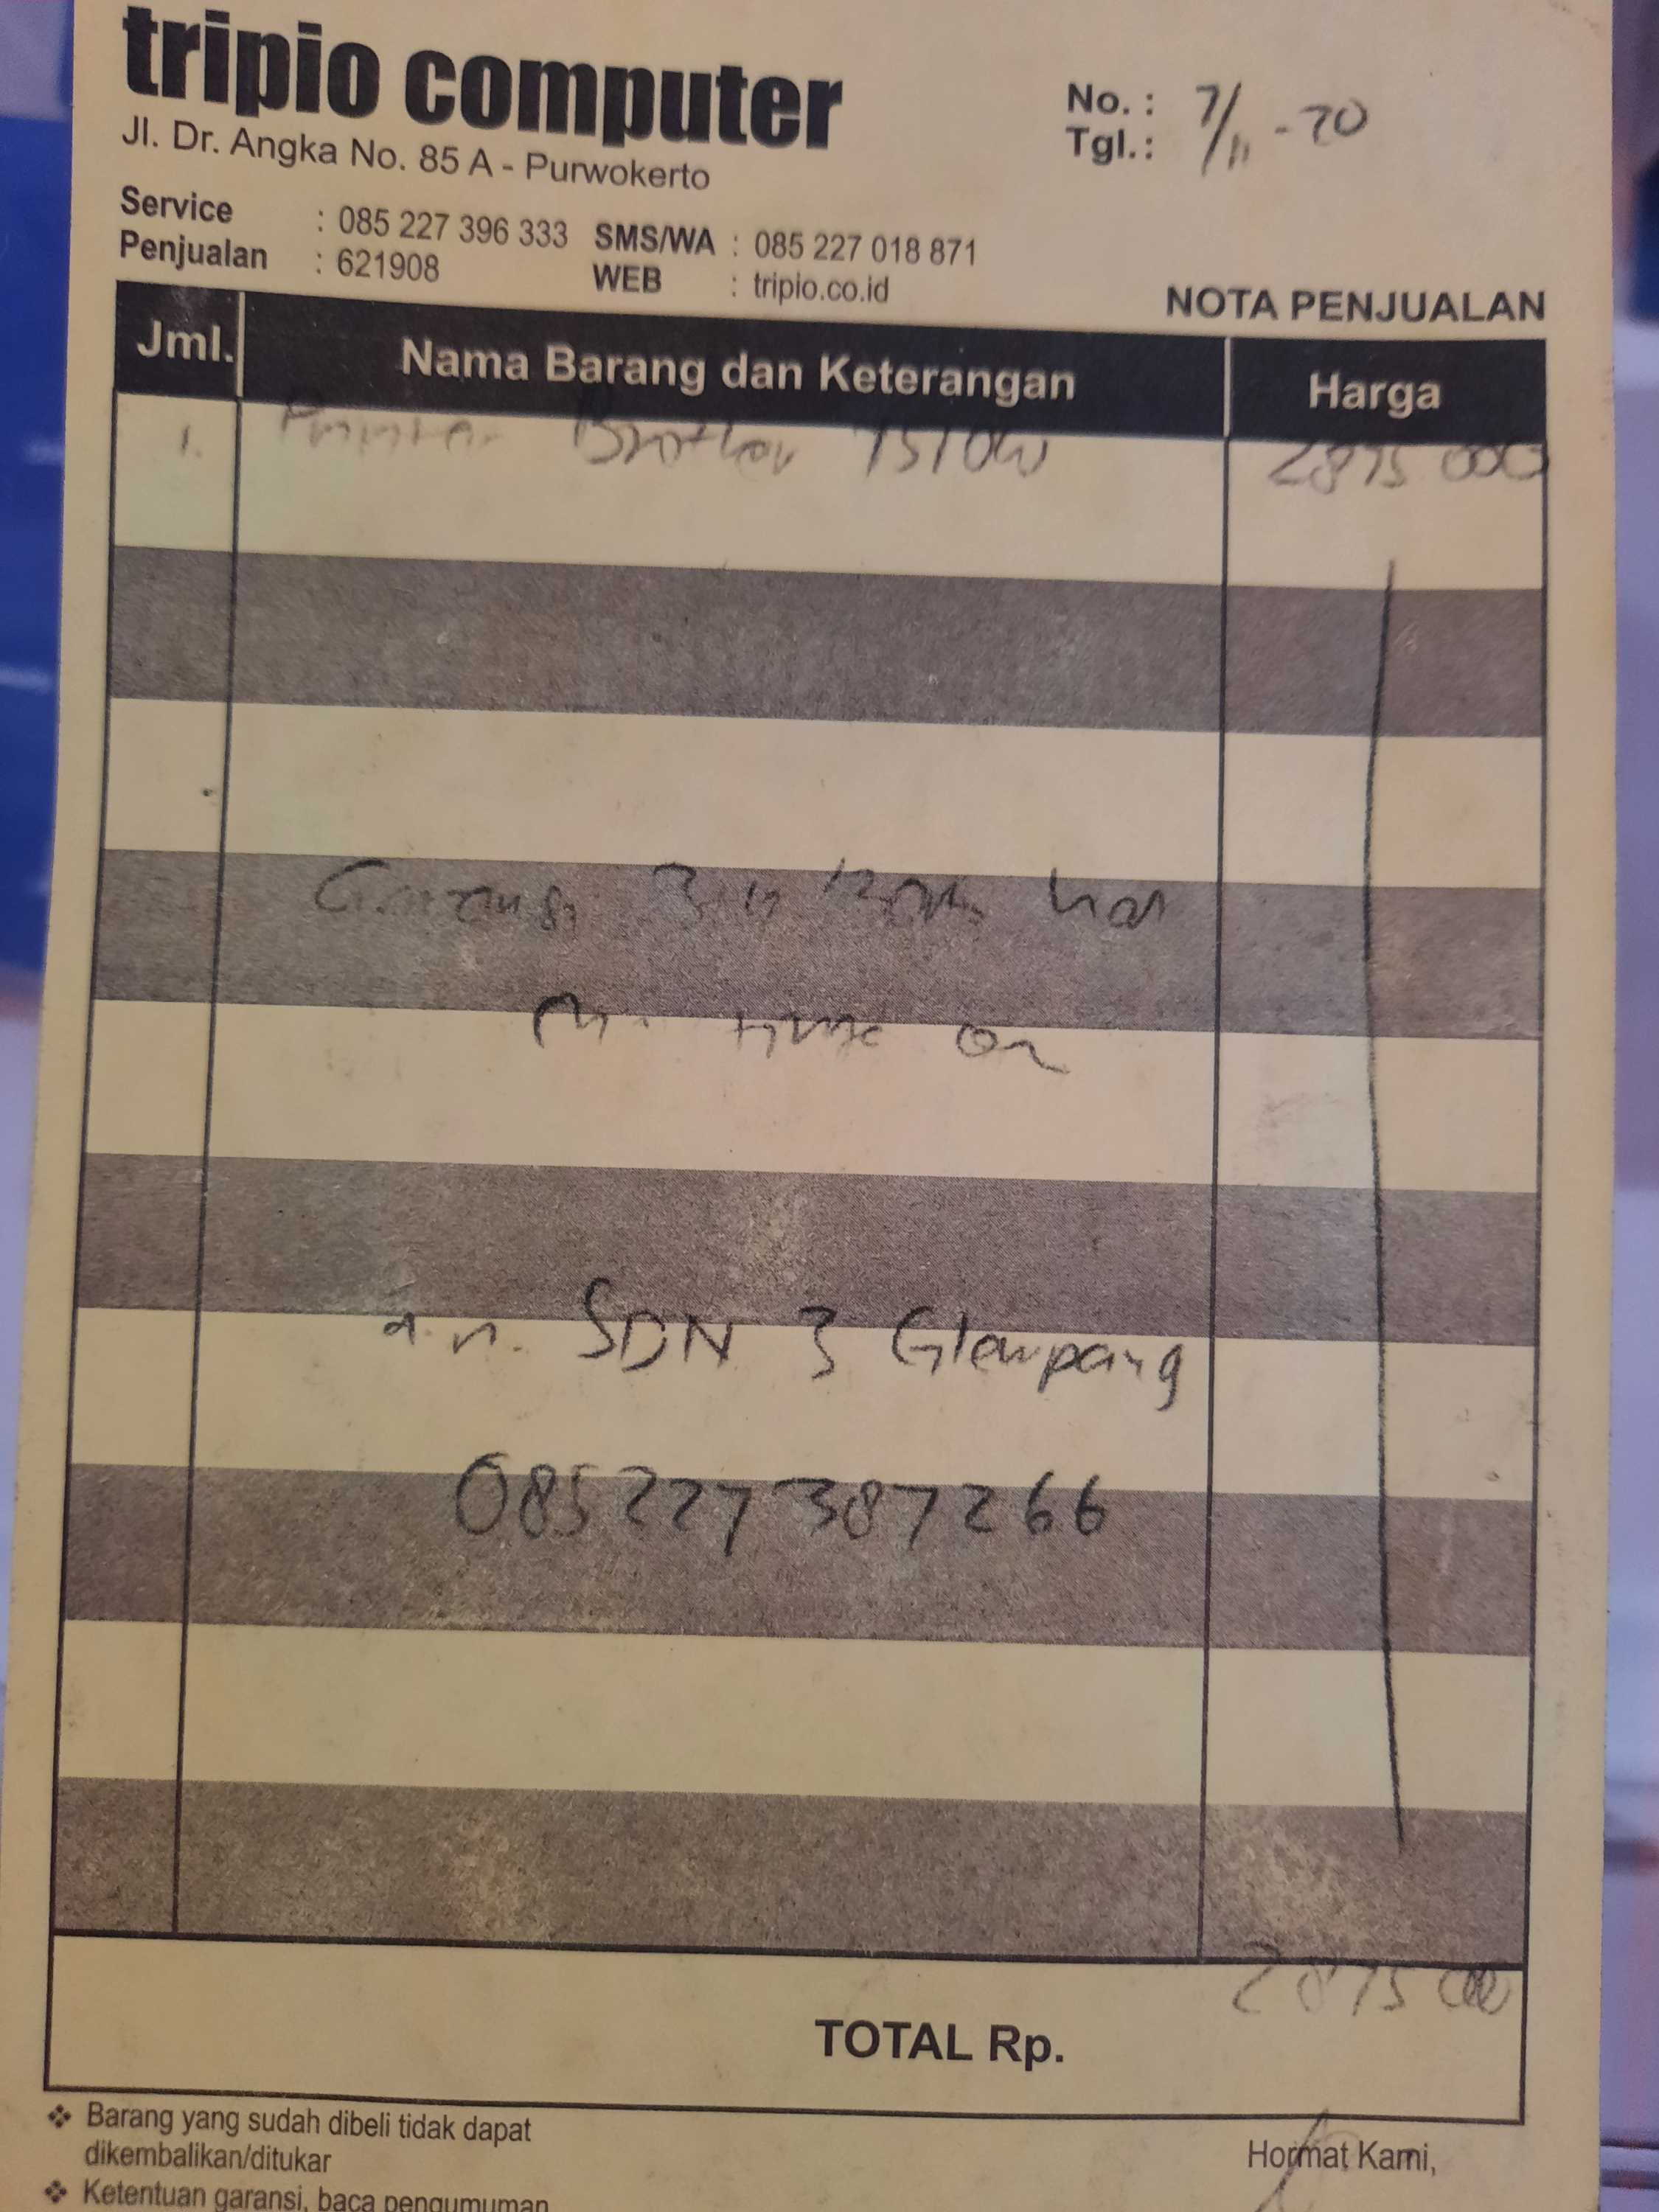 tripio computer
Jl. Dr. Angka No. 85 A - Purwokerto
No. :
Tgl. : 7/11 - 20
Service : 085 227 396 333 SMS/WA : 085 227 018 871
Penjualan : 621908 WEB : tripio.co.id
NOTA PENJUALAN
Jml. Nama Barang dan Keterangan Harga
1. Printer Brother T510W 2875 000
Garansi
time on
a.n. SDN 3 Glempang
085227387266
2875 000
TOTAL Rp.
❖ Barang yang sudah dibeli tidak dapat
dikembalikan/ditukar
Hormat Kami,
❖ Ketentuan garansi, baca pengumuman